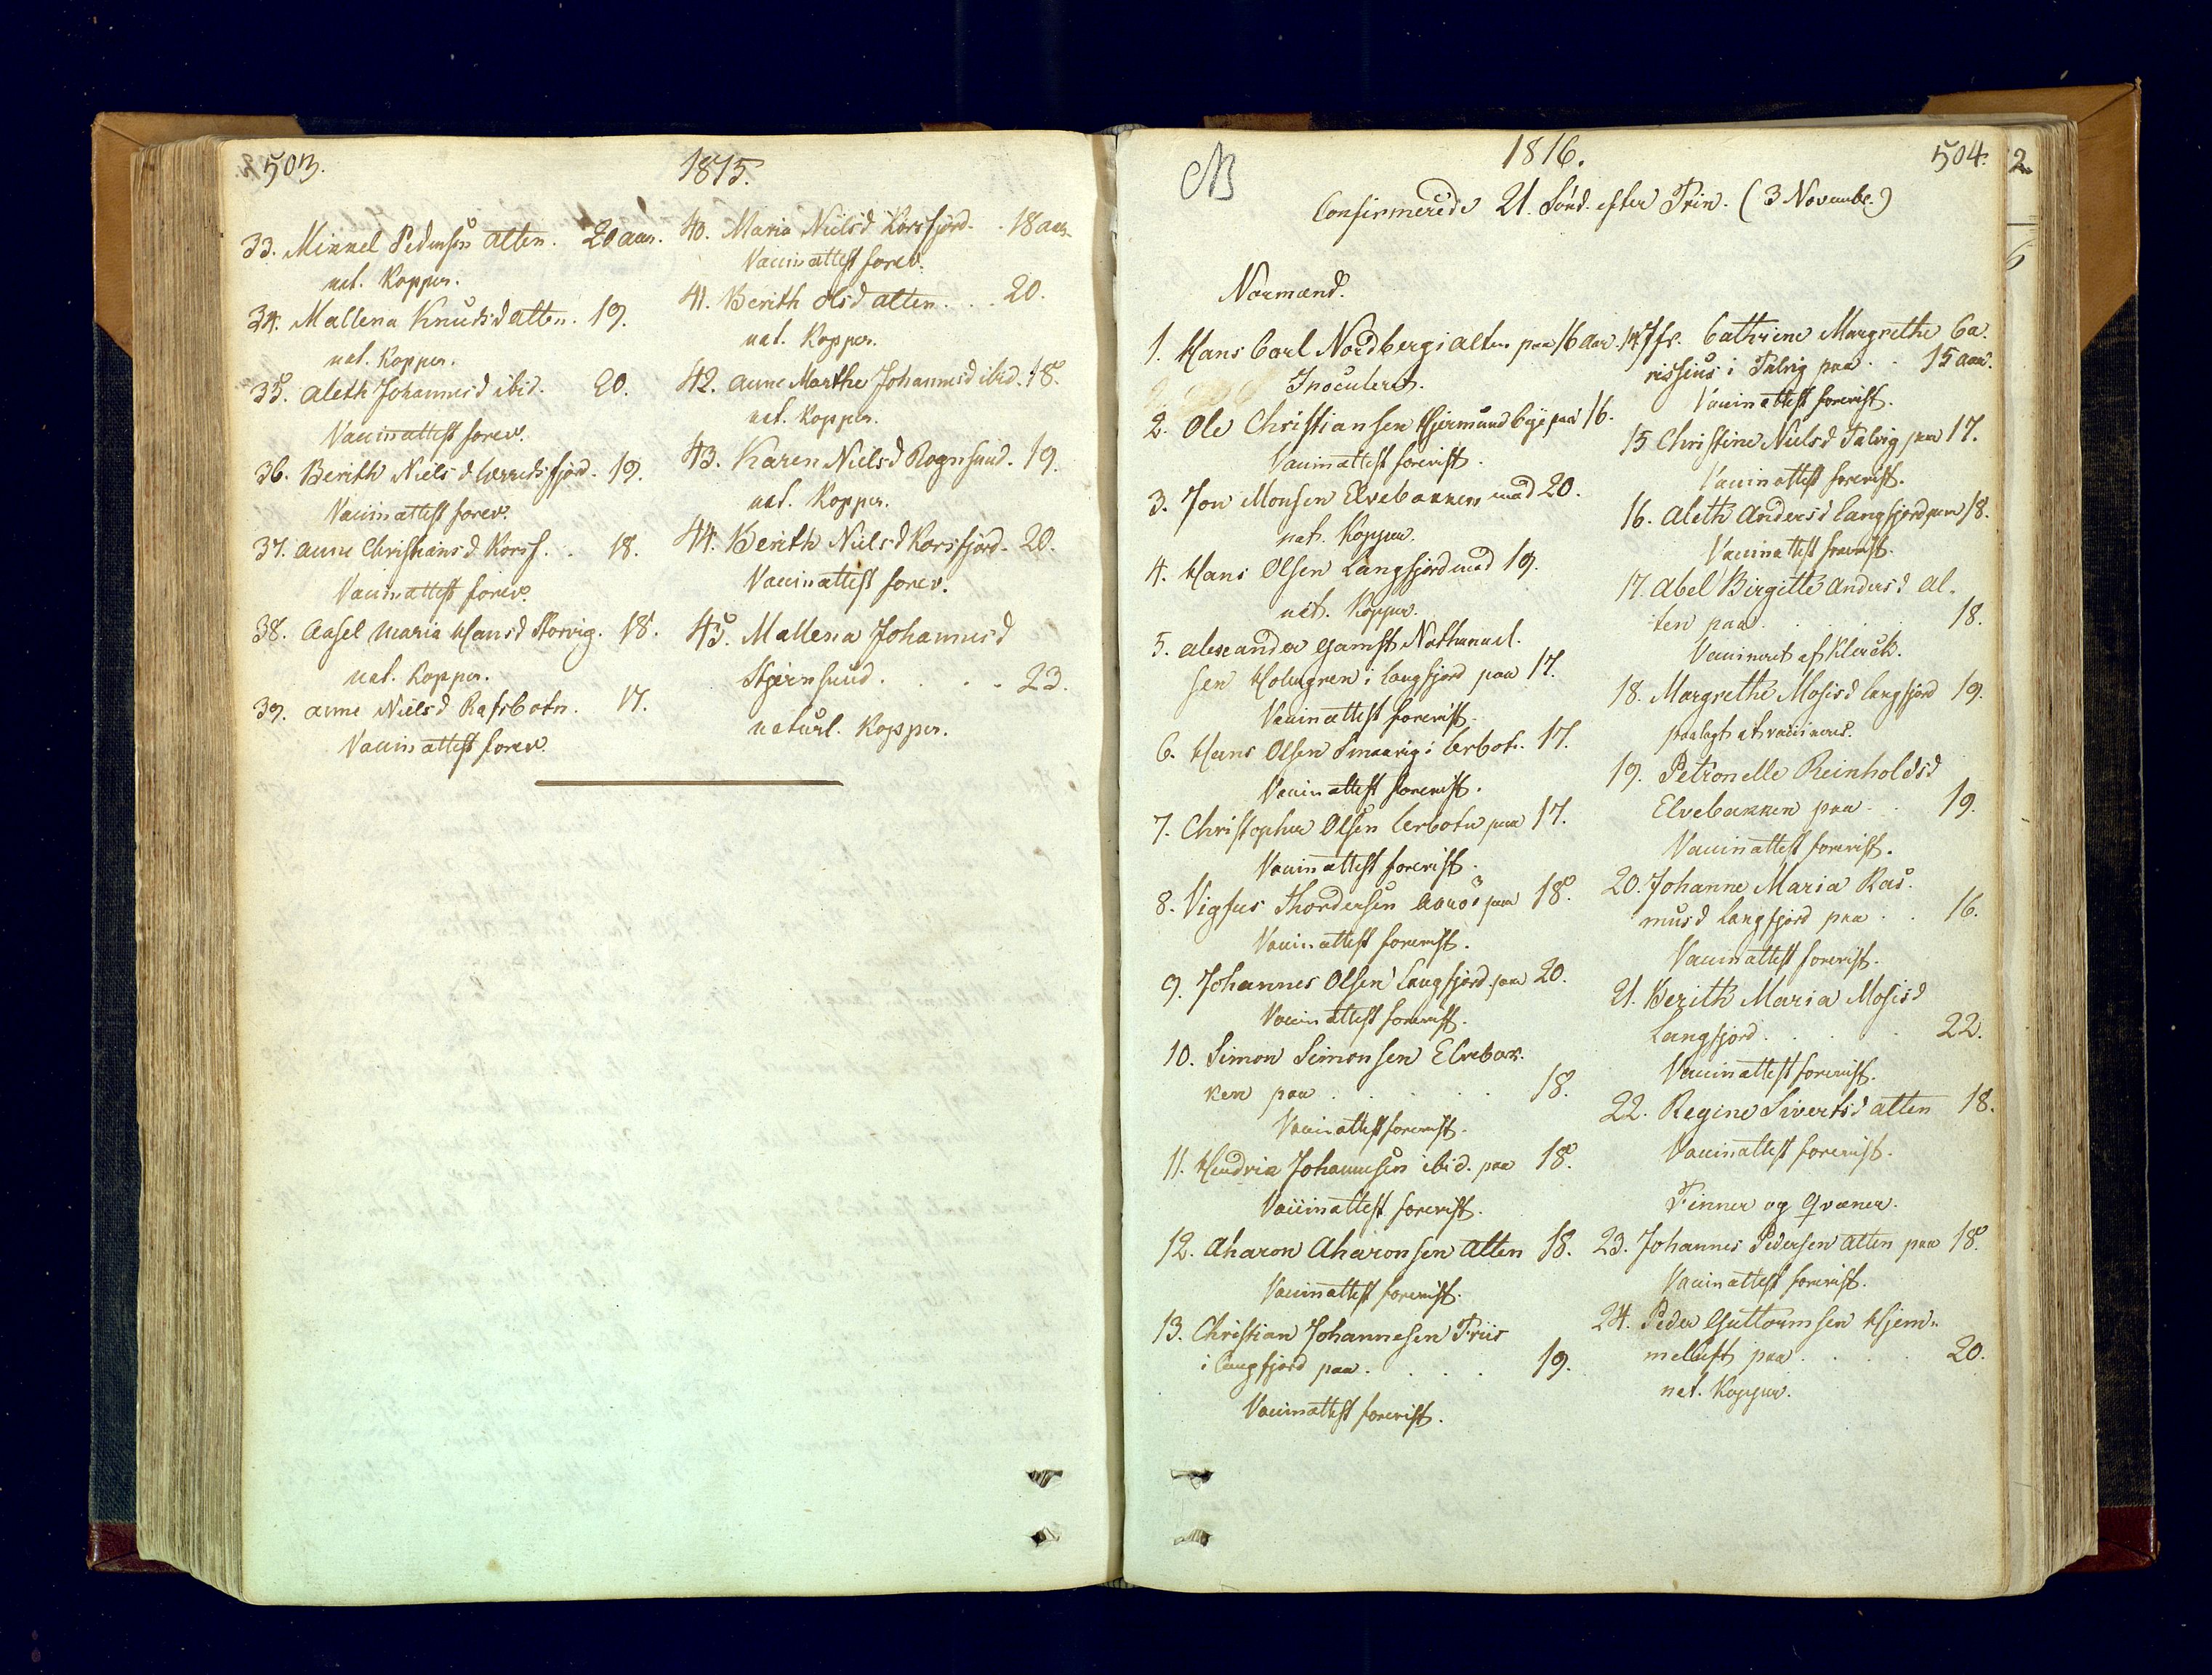 503.
1815.
33. Mikkel Pedersen Alten. 20 aar.
nat. Kopper.
34. Mallena Knudsd Alten. 19.
nat. Kopper.
35. Aleth Johannesd ibid. 20.
Vaccinattest forev.
36. Berith Nielsd Lerredsfjord. 19.
Vaccinattest forev.
37. Anne Christiansd Korsf. . 18.
Vaccinattest forev.
38. Aasel Maria Hansd Storvig. 18.
nat. Kopper.
39. Anne Nielsd Rafsbotn. 17.
Vaccinattest forev.
40. Maria Nielsd Korsfjord. . 18 aar
Vaccinattest forev.
41. Berith Olsd Alten. . . 20.
nat. Kopper.
42. Anne Marthe Johannesd ibid. 18.
nat. Kopper.
43. Karen Nielsd Rognsund. 19.
nat. Kopper.
44. Berith Nielsd Korsfjord. 20.
Vaccinattest forev.
45. Mallena Johannesd
Stjernsund. . . . 23.
naturl. Kopper.
NB
1816.
504.
Confirmerede 21. Sönd. efter Trin. (3 Novembr.)
Normænd.
1. Hans Carl Nordberg i Alten paa 16 aar.
Inoculeret.
2. Ole Christiansen paa 16.
Vaccinattest forevist.
3. Jon Monsen Elvebakken med 20.
nat. Kopper.
4. Hans Olsen Langfjord med 19.
nat. Kopper.
5. Alexander Gamst Nathanael.
sen Holmgren i Langfjord paa 17.
Vaccinattest forevist.
6. Hans Olsen Smaavig i Lerbotn. 17.
Vaccinattest forevist.
7. Christopher Olsen Lerbotn paa 17.
Vaccinattest forevist.
8. Vigfus Thordersen paa 18.
Vaccinattest forevist.
9. Johannes Olsen Langfjord paa 20.
Vaccinattest forevist.
10. Simon Simonsen Elvebak.
ken paa . . . . 18.
Vaccinattest forevist.
11. Hendrik Johannesen ibid. paa 18.
Vaccinattest forevist.
12. Aharon Aharonsen Alten 18.
Vaccinattest forevist.
13. Christian Johannesen Friis
i Langfjord paa . . . . 19.
Vaccinattest forevist.
14. Jfr. Cathrine Margrethe Ca.
rissius i Talvig paa . . 15 aar.
Vaccinattest forevist.
15 Christine Nielsd Talvig paa 17.
Vaccinattest forevist.
16. Aleth Andersd Langfjord paa 18.
Vaccinattest forevist.
17. Abel Birgitte Andersd Al-
ten paa . . . . 18.
Vaccineret af Klerck.
18. Margrethe Mosisd Langfjord 19.
paalagt at vaccineres.
19. Petronelle Reinholdsd
Elvebakken paa . . 19.
Vaccinattest forevist.
20. Johanne Maria Ras.
musd Langfjord paa . . 16.
Vaccinattest forevist.
21. Berith Maria Mosisd
Langfjord . . . . 22.
Vaccinattest forevist.
22. Regine Sivertsd Alten 18.
Vaccinattest forevist.
Finner og Qvæner.
23. Johannes Pedersen Alten paa 18.
Vaccinattest forevist.
24. Peder Guttormsen Hjem-
melluft paa . . . . 20.
nat. Kopper.